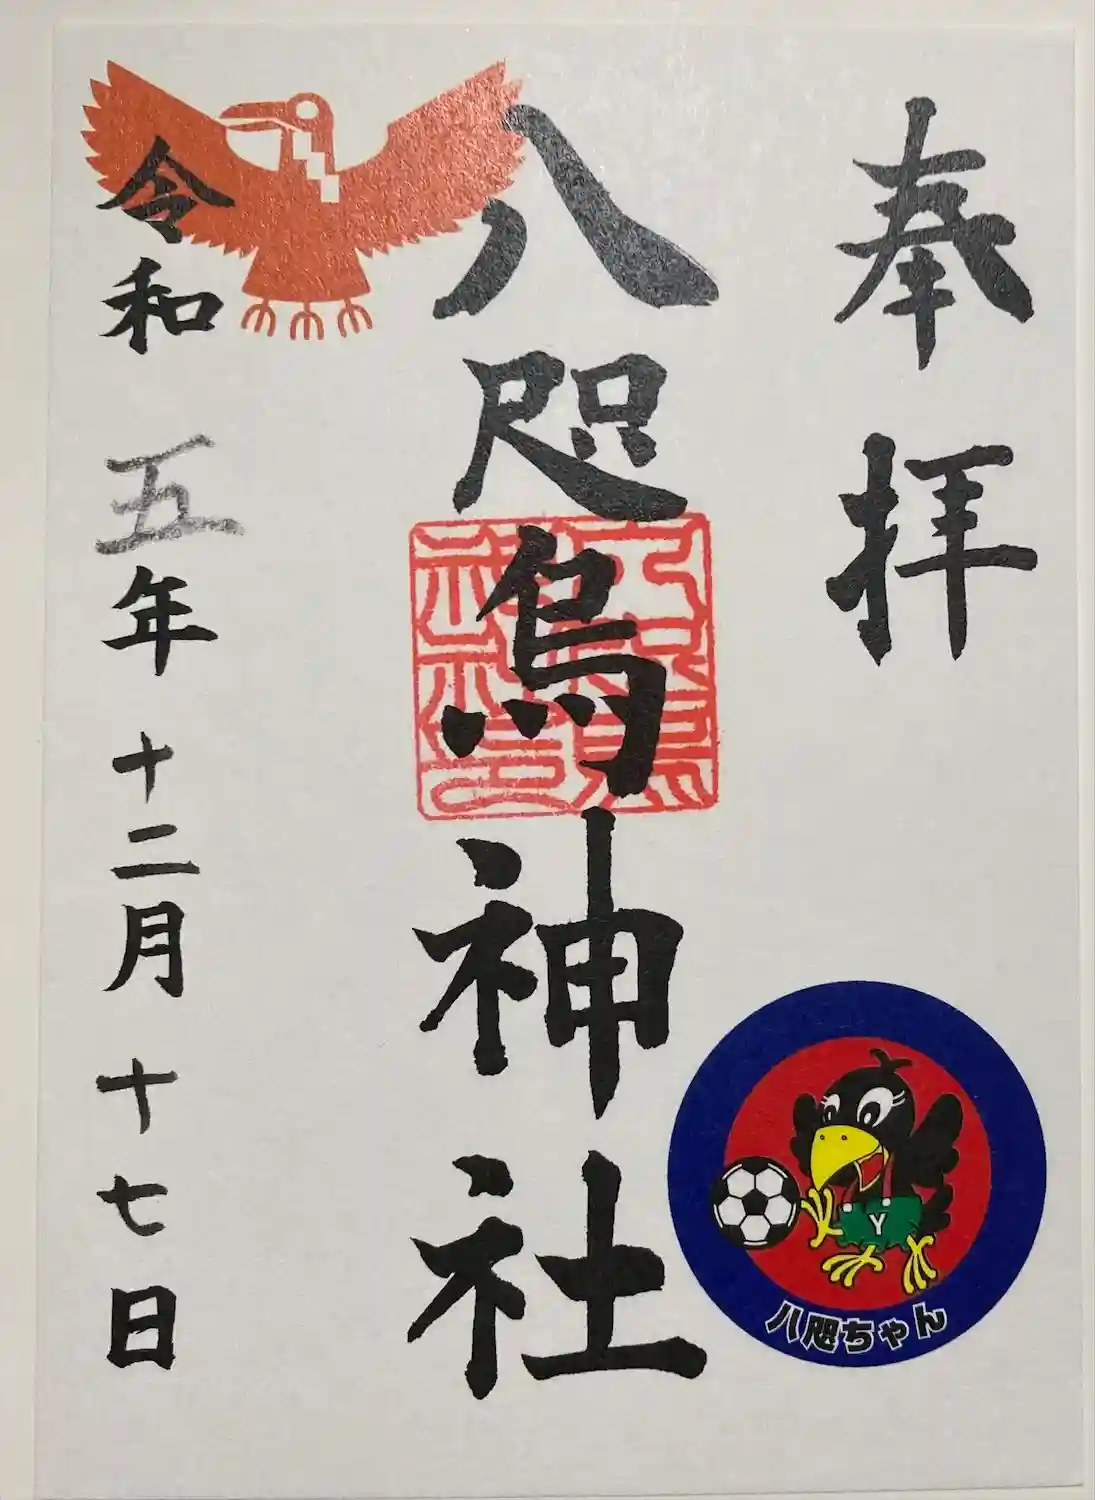 奉拝
八咫烏神社
令和五年十二月十七日
Y
八咫ちゃん